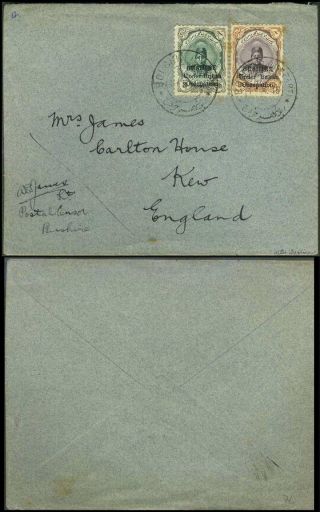 BUSHIRE
Under British
Occupation.
BUSHIRE
Under British
Occupation.
Mrs James
Carlton House
Kew
England
Postal Censor
Bushire